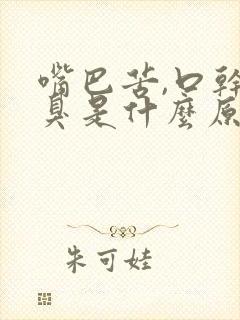 嘴巴苦,口幹
臭是什麼原
朱可娃